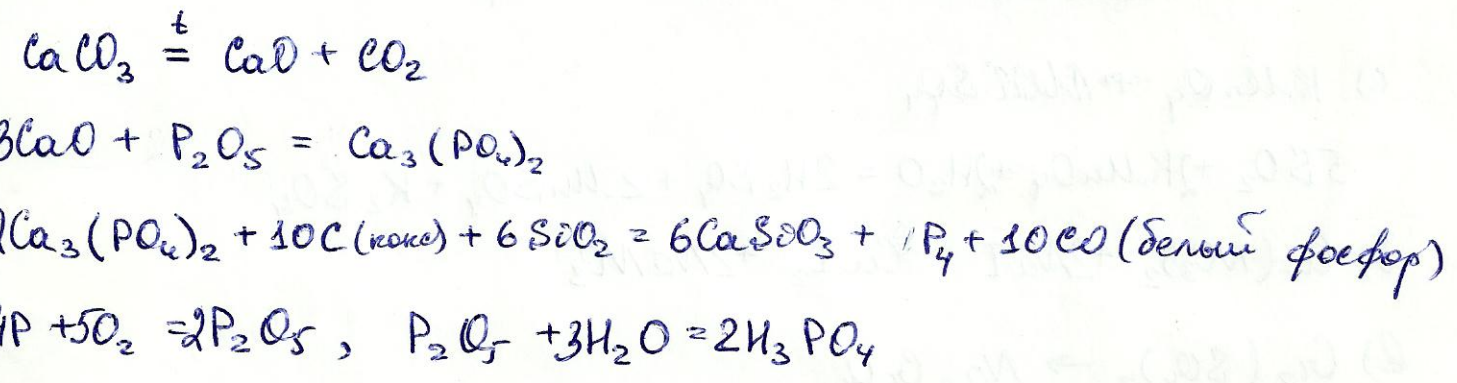 CaCO₃ =ᵗ CaO + CO₂
3CaO + P₂O₅ = Ca₃(PO₄)₂
2Ca₃(PO₄)₂ + 10C (кокс) + 6SiO₂ = 6CaSiO₃ + P₄ + 10CO (белый фосфор)
4P + 5O₂ = 2P₂O₅, P₂O₅ + 3H₂O = 2H₃PO₄